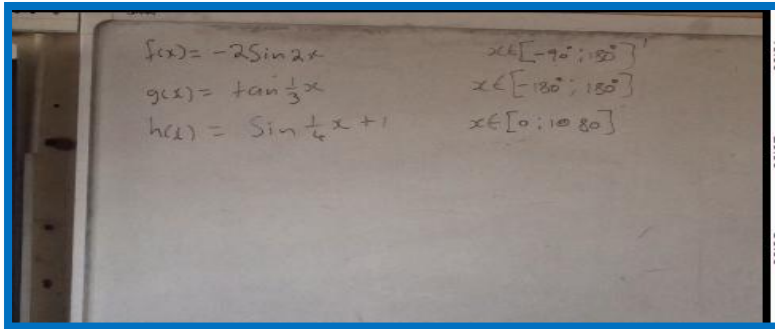 f(x) = -2Sin2x x∈[-90°;180°]
g(x) = tan 1/3 x x∈[-180°;180°]
h(x) = Sin 1/4 x + 1 x∈[0;1080]